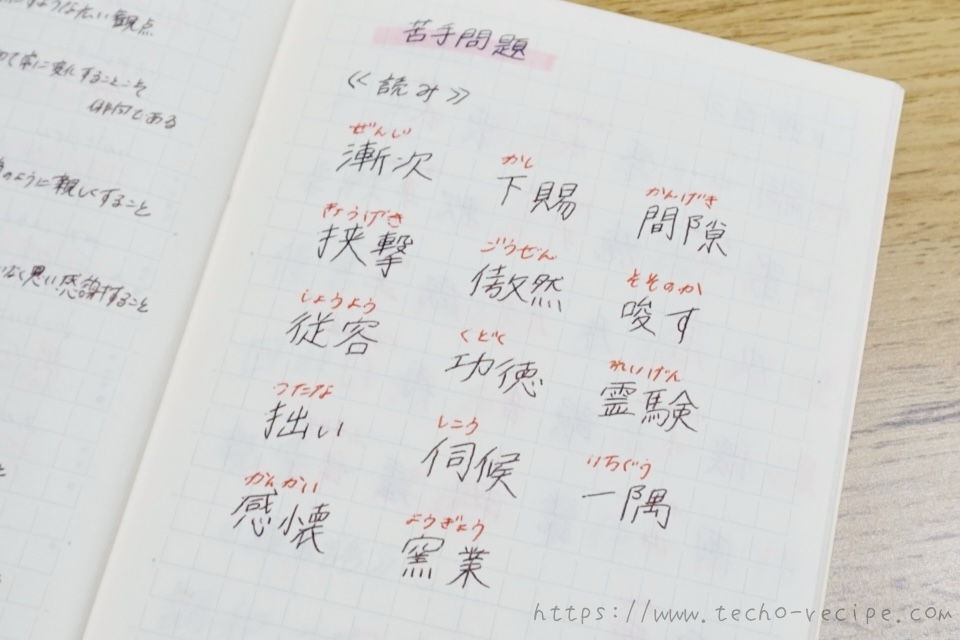 観点
常に変化することこそ
俳句である
のように親しくすること
なく思い感謝すること
苦手問題
≪読み≫
ぜんじ
漸次
きょうげき
挟撃
しょうよう
従容
つたな
拙い
かんかい
感懐
かし
下賜
ごうぜん
傲然
くどく
功徳
しこう
伺候
ようぎょう
窯業
かんげき
間隙
そそのか
唆す
れいげん
霊験
いちぐう
一隅
https://www.techo-recipe.com/